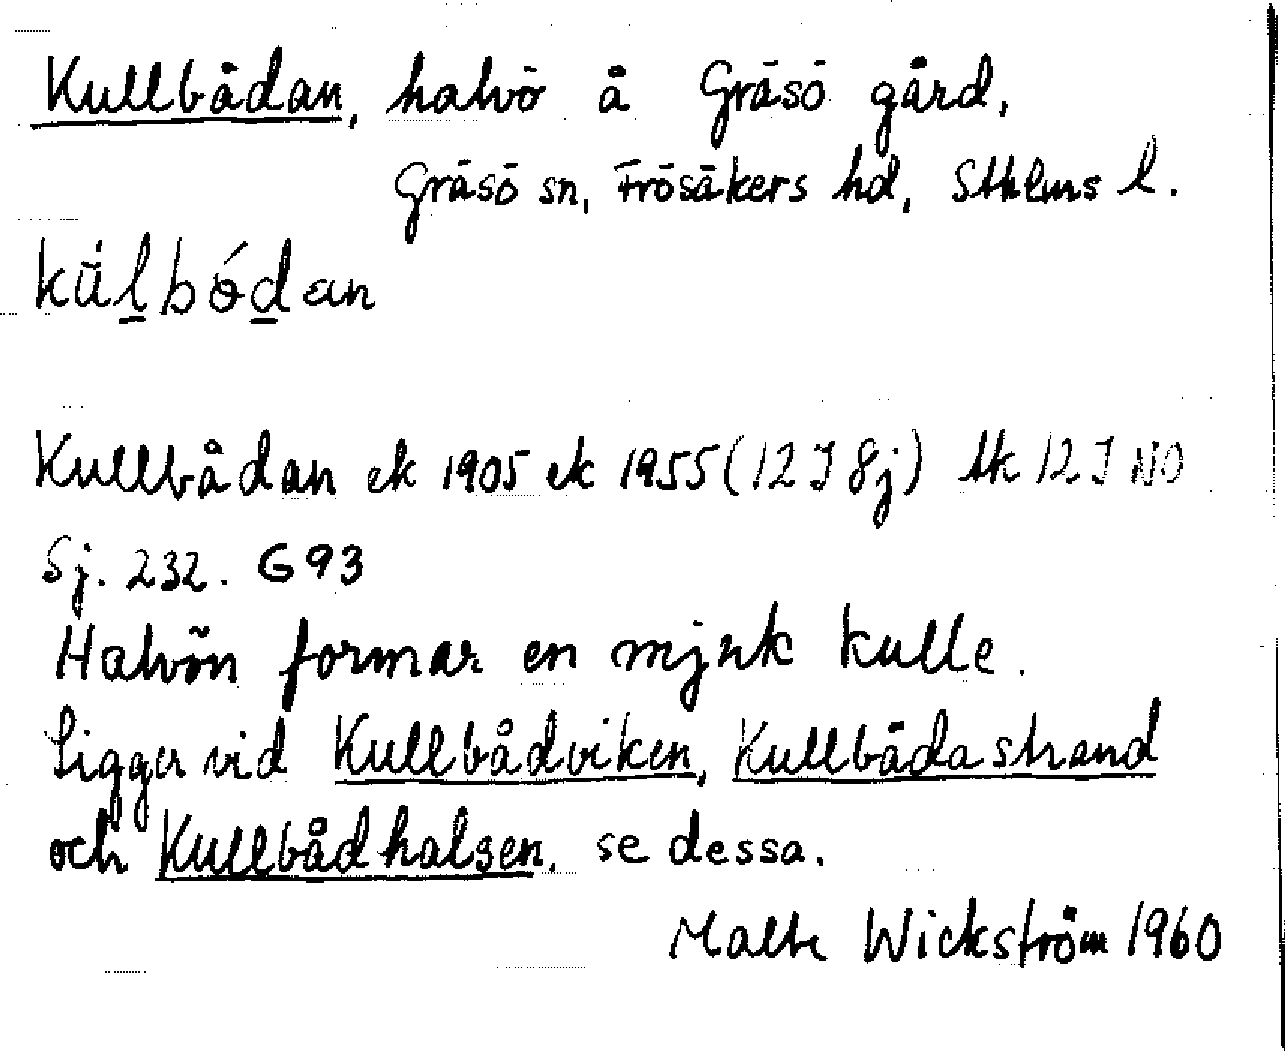 Kullbådan, halvö å Gräsö gård,
Gräsö sn, Frösåkers hd, Sthlms l.
kǜl̠bǿd̠an
Kullbådan ek 1905 ek 1955 (12 I 8j) tk 12 I NO
Sj. 232. G93
Halvön formar en mjuk kulle.
Ligger vid Kullbådviken, Kullbådastrand
och Kullbådhalsen, se dessa.
Malte Wickström 1960